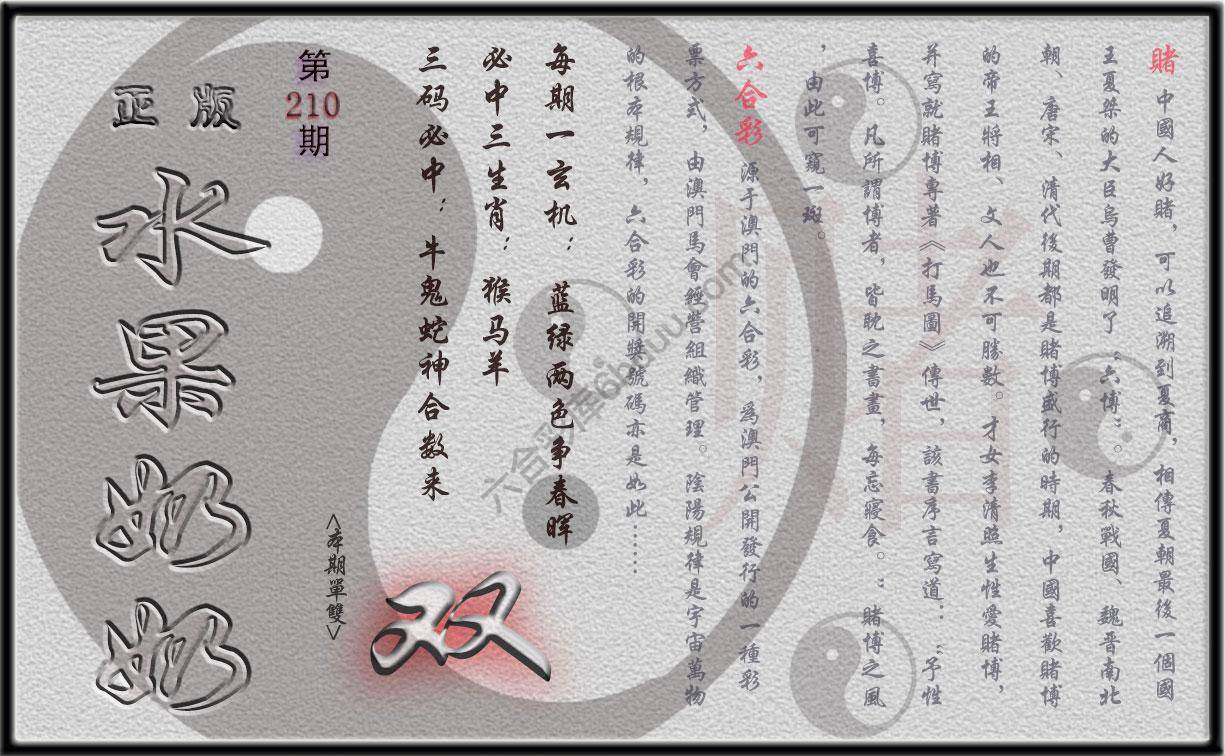 賭 中國人好賭，可以追溯到夏商，相傳夏朝最後一個國
王夏桀的大臣烏曹發明了“六博”。春秋戰國、魏晉南北
朝、唐宋、清代後期都是賭博盛行的時期，中國喜歡賭博
的帝王將相、文人也不可勝數。才女李清照生性愛賭博，
并寫就賭博專著《打馬圖》傳世，該書序言寫道：“予性
喜博。凡所謂博者，皆耽之書畫，每忘寢食。”賭博之風
，由此可窺一斑。
六合彩 源于澳門的六合彩，爲澳門公開發行的一種彩
票方式，由澳門馬會經營組織管理。陰陽規律是宇宙萬物
的根本規律，六合彩的開獎號碼亦是如此……
每期一玄机：蓝绿两色争春晖
必中三生肖：猴马羊
三码必中：牛鬼蛇神合数来
第
210
期
正版
水果奶奶
<本期單雙>
双
賭
六合彩库6huu.com